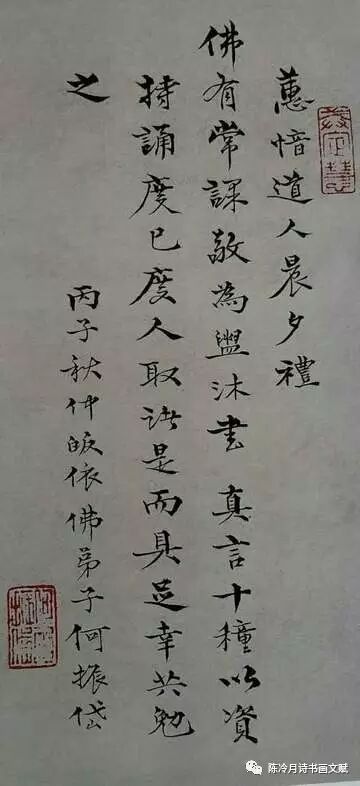 蕙愔道人晨夕禮
佛有常課敬為盥沐書 真言十種以資
持誦度己度人取諸是而具足幸共勉
之 丙子秋仲皈依佛弟子何振岱
陈冷月诗书画文赋